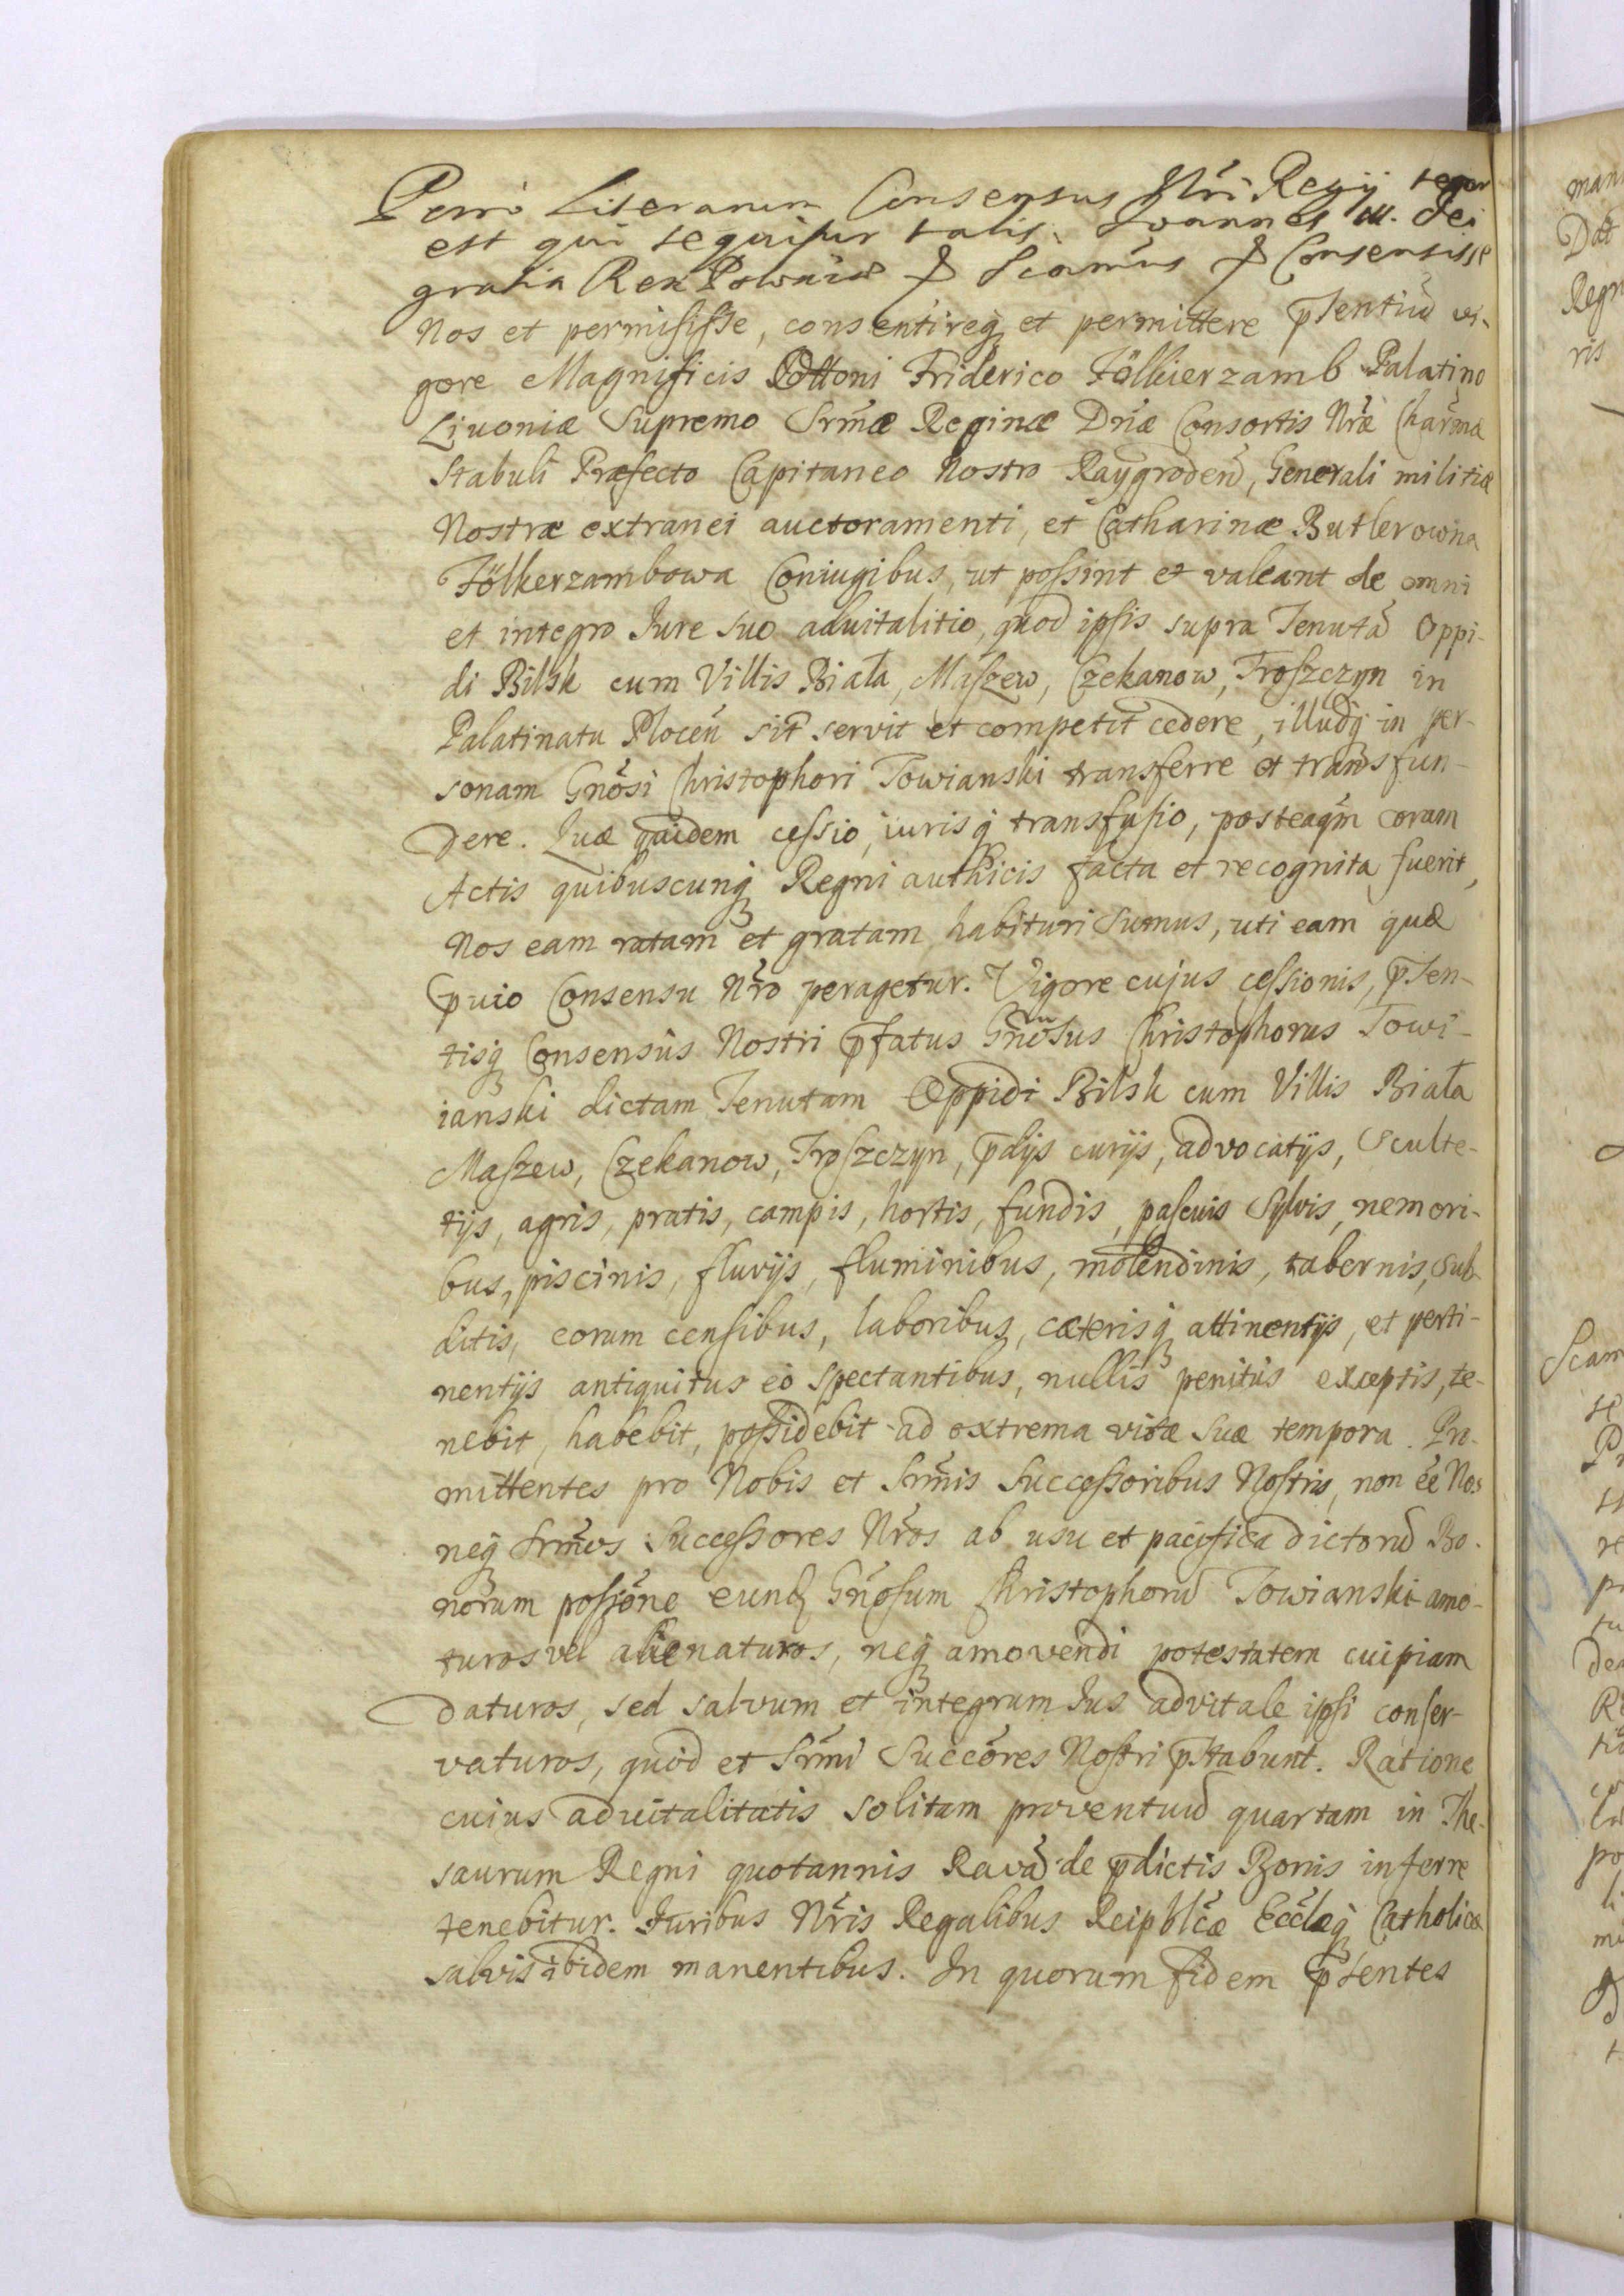 Porro Literarum Consensus Nri Regij tenor
est qui sequitur talis. Joannes III. Dei
gratia Rex Poloniæ & Scamus & Consensisse
Nos et permisisse, consentireq et permittere p̄sentiũ vi-
gore Magnificis Ottoni Friderico Fölkierzamb Palatino
Livoniæ Supremo Srmæ Reginæ Dnæ Consortis Nræ Charmæ
Stabuli Præfecto Capitaneo Nostro Raygroden̄, Generali militiæ
Nostræ extranei auctoramenti, et Catharinæ Butlerowna
Fölkerzambowa Coniugibus, ut possint et valeant de omni
et integro Iure suo advitalitio, quod ipsis supra Tenutã Oppi-
di Bilsk cum Villis Biała, Maszew, Czekanow, Troszczyn in
Palatinatu Plocen̄ sit̃ servit et competit cedere, illudq in per-
sonam Gnosi Christophori Towianski transferre et transfun-
dere. Quæ quidem cessio, iurisq transfusio, posteaqm coram
Actis quibuscunq Regni authcis facta et recognita fuerit,
Nos eam ratam et gratam habituri sumus, uti eam quæ
p̄vio Consensu Nro peragetur. Vigore cujus cessionis, p̄sen-
tisq Consensus Nostri p̄fatus Gnosus Christophorus Towi-
ianski dictam Tenutam Oppidi Bilsk cum Villis Biała
Maszew, Czekanow, Troszczyn, p̄dijs curijs, advocatijs, Sculte-
tijs, agris, pratis, campis, hortis, fundis, pascuis Sylvis, nemori-
bus, piscinis, fluvijs, fluminibus, molendinis, tabernis, Sub-
ditis, eorum censibus, laboribus, cæterisq attinentijs, et perti-
nentijs antiquitus eò spectantibus, nullis penitùs exceptis, te-
nebit, habebit, possidebit ad extrema vitæ suæ tempora. Pro-
mittentes pro Nobis et Srmis Successoribus Nostris, non ẽe Nos
neq Srmos Successores Nros ab usu et pacifica dictorũ Bo-
norum possione eund Gnosum Christophorũ Towianski amo-
turos vel alienaturos, neq amovendi potestatem cuipiam
daturos, sed salvum et integrum Ius advitale ipsi conser-
vaturos, quod et Srmi Succores Nostri p̄stabunt. Ratione
cuius advitalitatis solitam proventuũ quartam in The-
saurum Regni quotannis Ravã de p̄dictis Bonis inferre
tenebitur. Iuribus Nris Regalibus Reipblcæ Eccłæq Catholicæ
salvis ibidem manentibus. In quorum fidem p̄sentes